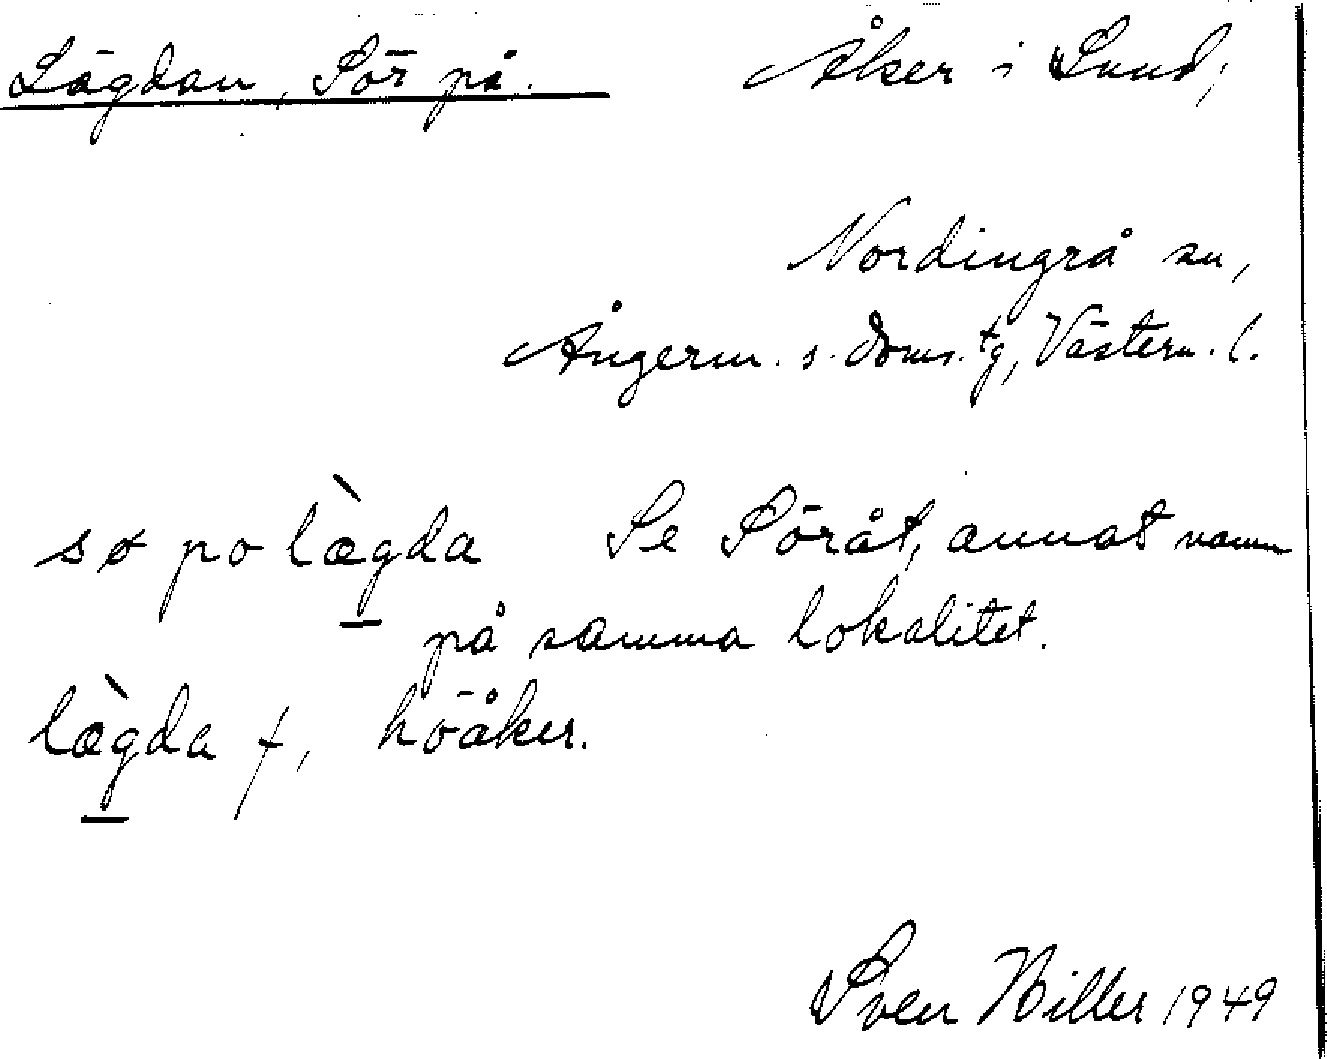 Lägdan, Sör på.
Åker i Sund,
Nordingrå sn,
Ångerm. s. doms. tg, Västern. l.
sø po læ̀gda Se Söråt, annat namn
på samma lokalitet.
læ̀gda f, höåker.
Sven Hiller 1949